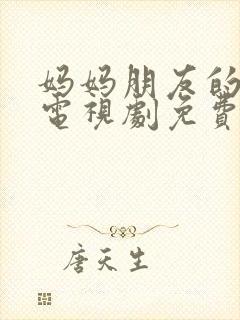 妈妈朋友的
電視劇免費
唐天生